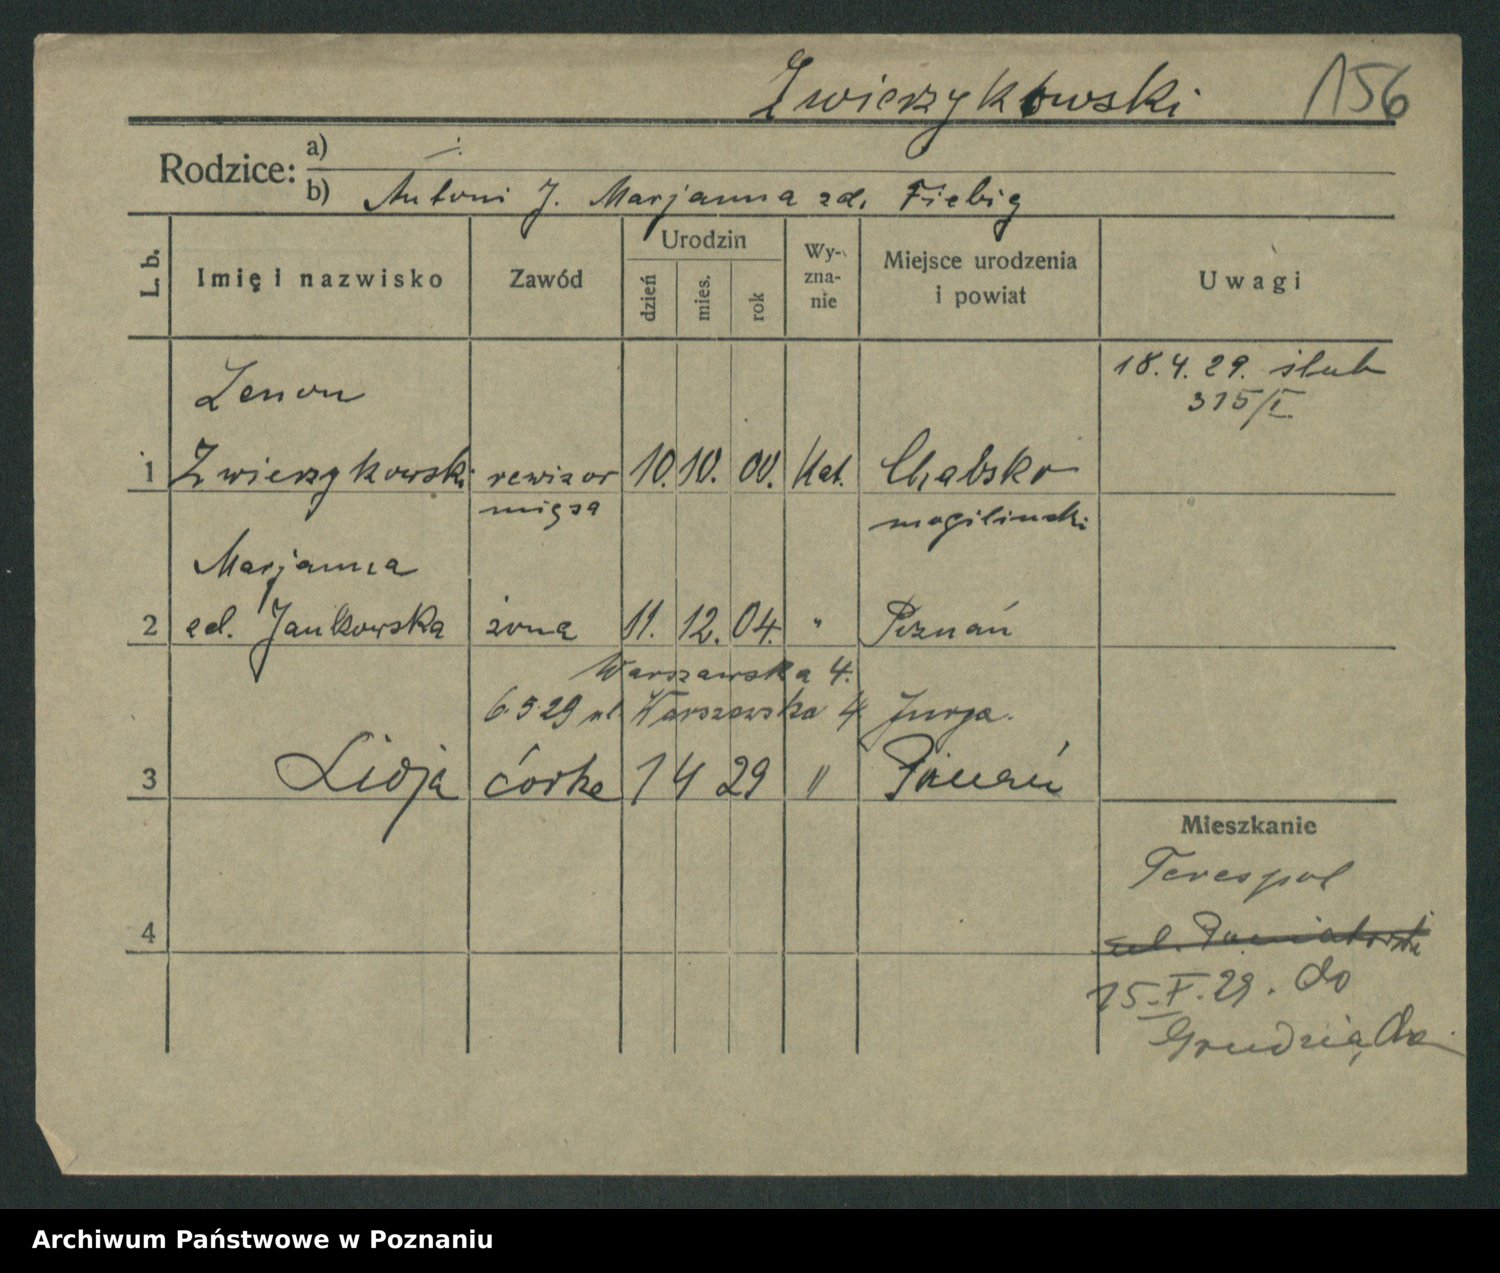 Zwierzykowski 156
Rodzice: a) ./.
b) Antoni J. Marjanna zd. Fiebig
L. b. Imię i nazwisko Zawód Urodzin dzień mies. rok Wy-zna-nie Miejsce urodzenia i powiat Uwagi
18.4.29. ślub
315/I.
Zenon
1 Zwierzykowski rewizor 10. 10. 00. Kat. Chabsko
mięsa mogilinski
Marjanna
2 zd. Jankowska żona 11. 12. 04. " Poznań
Warszawska 4.
6 5 29 ul. Warszawska 4 Jurga.
3 Lidja córka 1 4 29 " Poznań
Mieszkanie
Terespol
4
15.V.29. do
Grudziądza
Archiwum Państwowe w Poznaniu